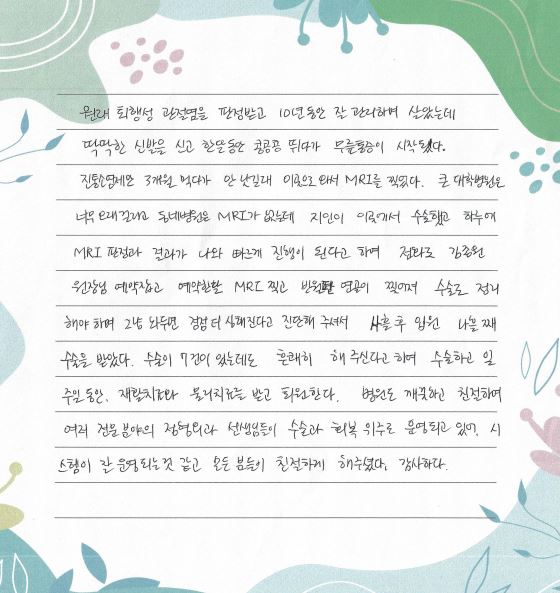 원래 퇴행성 관절염을 판정받고 10년동안 잘 관리하며 살았는데
딱딱한 신발을 신고 한달동안 콩콩콩 뛰다가 무릎통증이 시작됐다.
진통소염제만 3개월 먹다가 안 낫길래 이곳으로 와서 MRI를 찍었다. 큰 대학병원은
너무 오래걸리고 동네병원은 MRI가 없는데 지인이 이곳에서 수술했고 하루에
MRI 판정과 결과가 나와 빠르게 진행이 된다고 하며 전화로 김종원
원장님 예약잡고 예약한날 MRI 찍고 반월판 연골이 찢어져 수술로 정리
해야 하며 그냥 놔두면 점점 더 심해진다고 진단해 주셔서 사흘 후 입원 나흘 째
수술을 받았다. 수술이 7건이 있는데도 흔쾌히 해 주신다고 하여 수술하고 일
주일 동안. 재활치료와 물리치료를 받고 퇴원한다. 병원도 깨끗하고 친절하며
여러 전문분야의 정형외과 선생님들이 수술과 회복 위주로 운영되고 있어. 시
스템이 잘 운영되는것 같고 모든 분들이 친절하게 해주셨다. 감사하다.